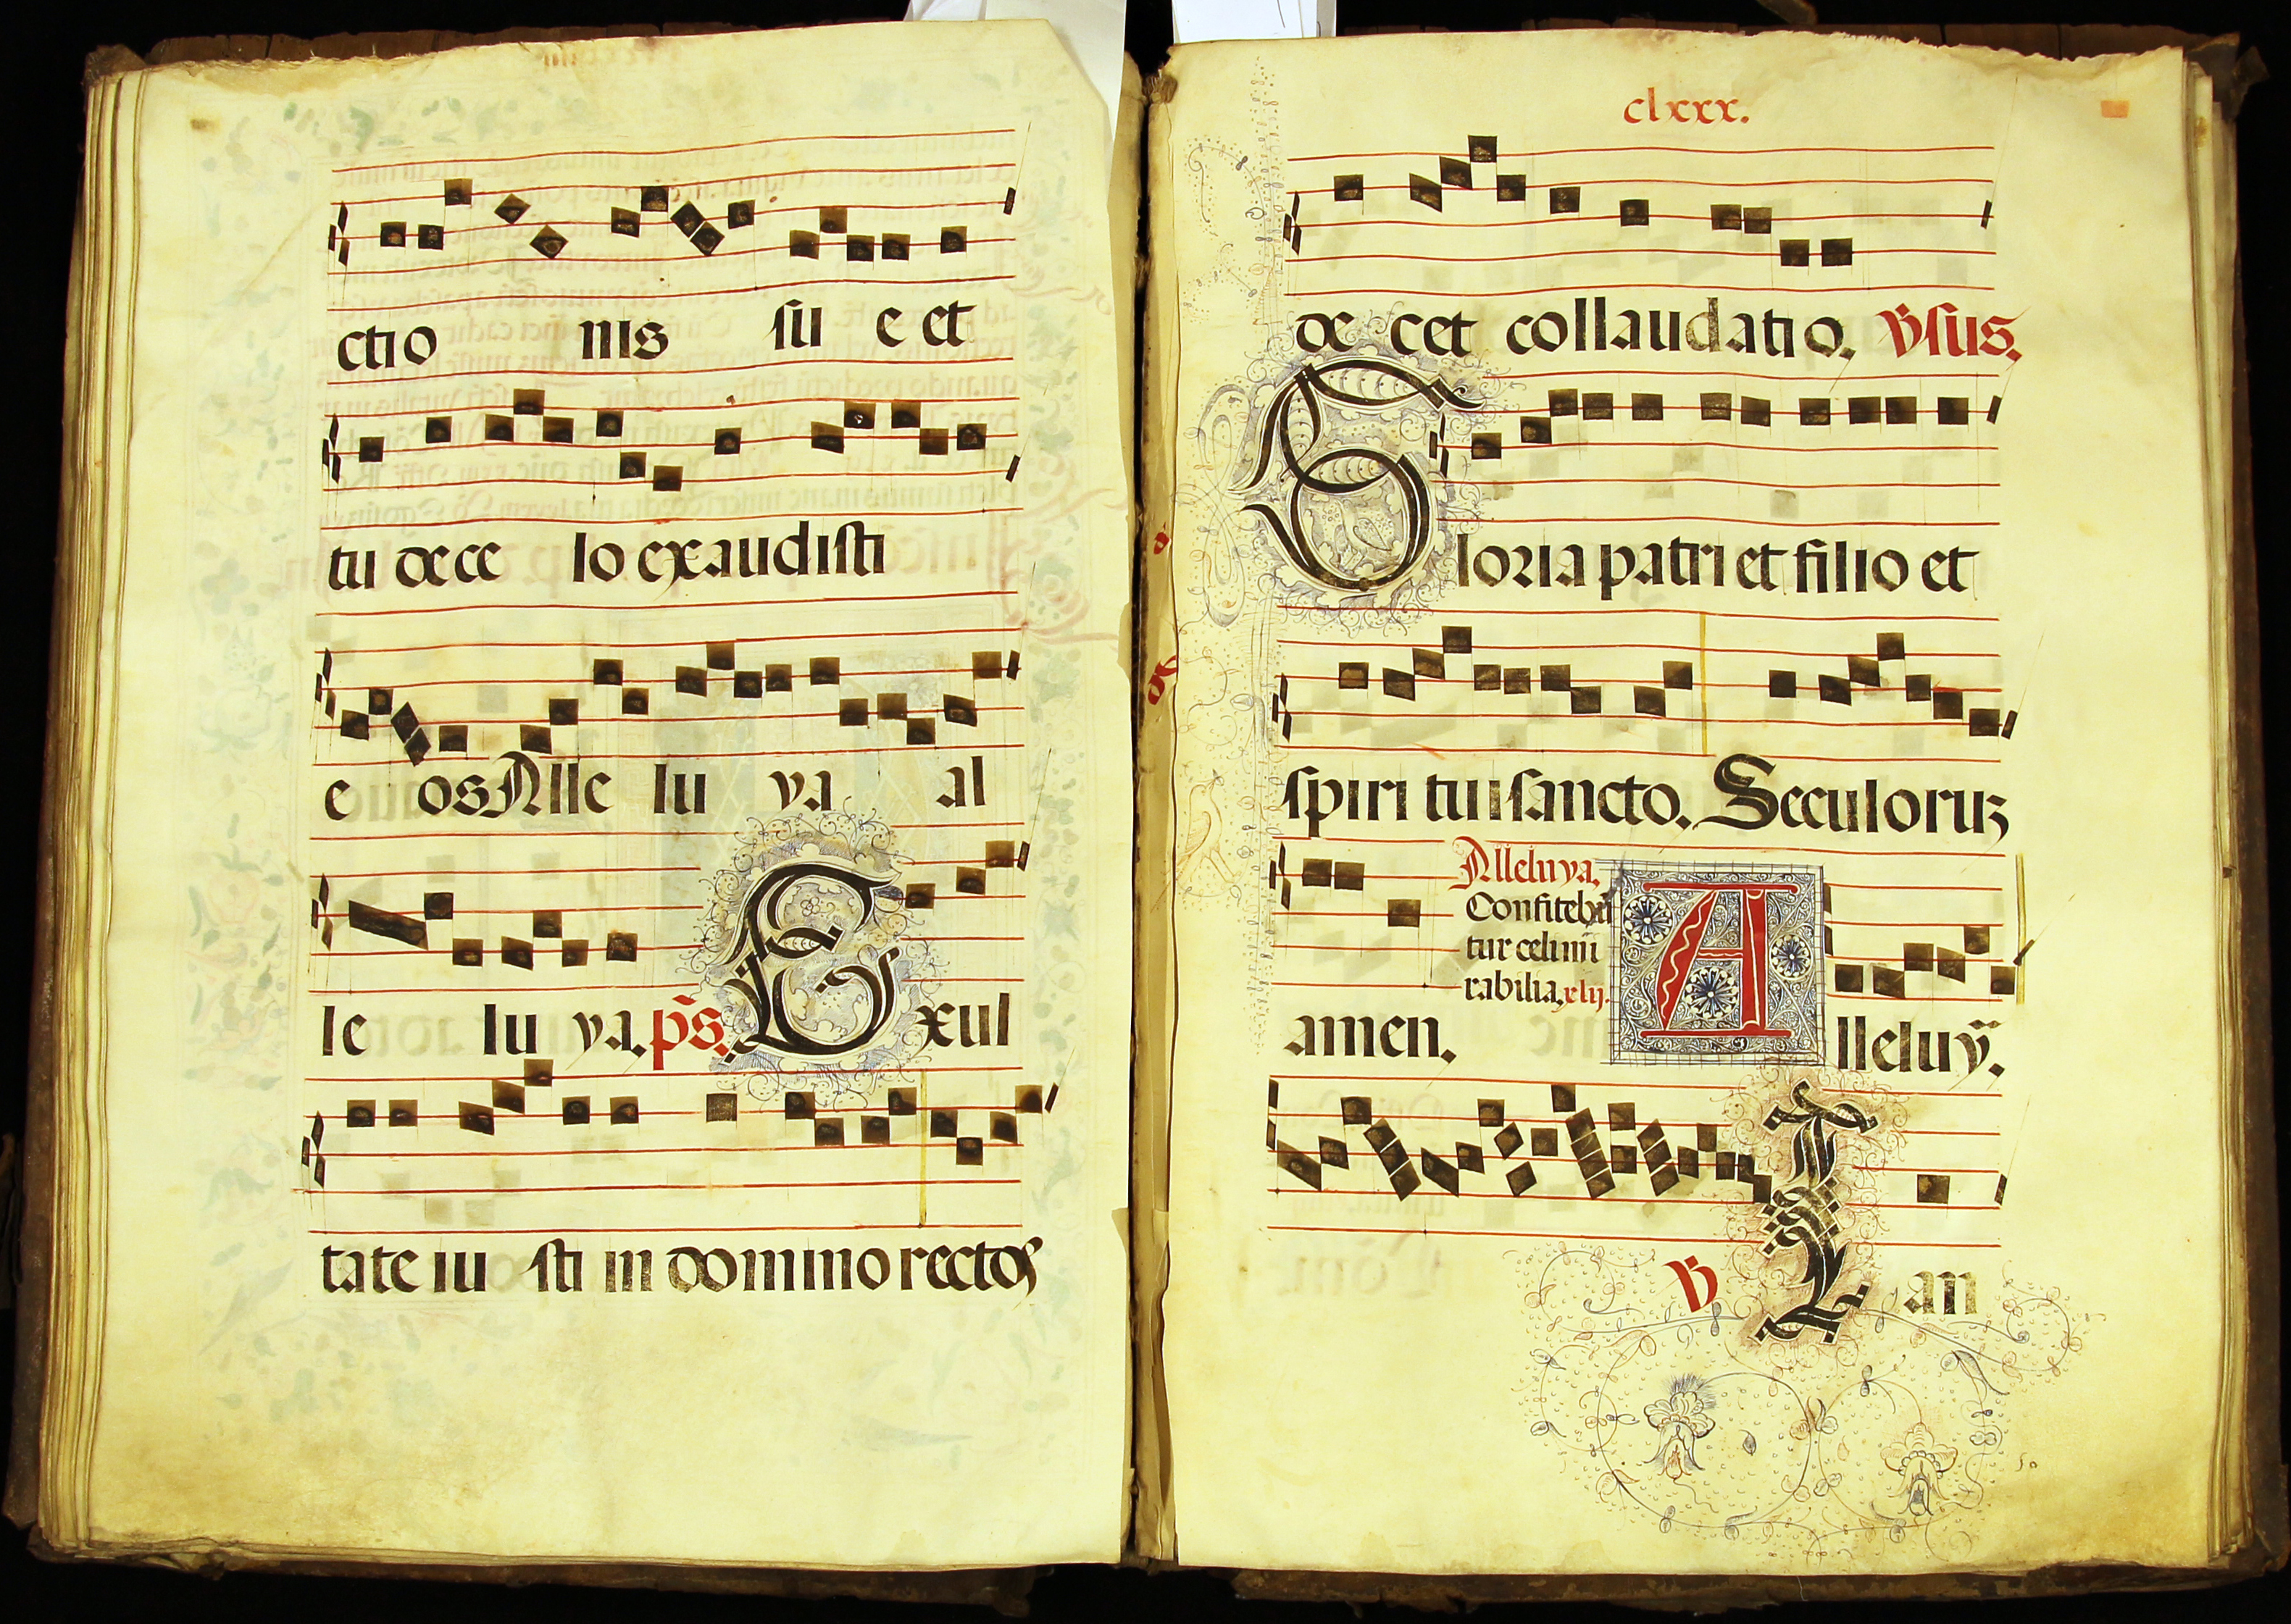 ctio nis su e et
tu de ce lo exaudisti
e os Alle lu ya al
le lu ya. ps. Exul
tate iu sti in domino rectos
clxxx.
de cet collaudatio. V̄sus.
Gloria patri et filio et
spiri tui sancto. Seculoruꝫ
Alleluya.
Confitebū
tur celi mi
rabilia. xlij.
amen. Alleluȳ.
V̄ Lan